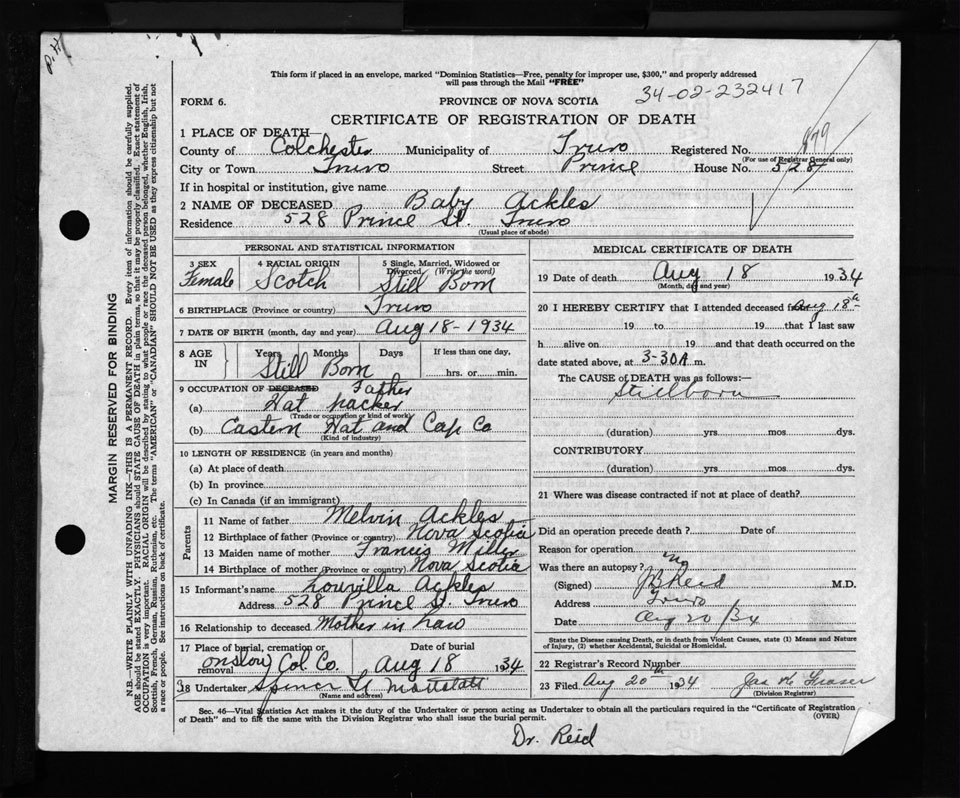 P. H
This form if placed in an envelope, marked "Dominion Statistics—Free, penalty for improper use, $300," and properly addressed
will pass through the Mail "FREE"
34-02-232417
FORM 6.
PROVINCE OF NOVA SCOTIA
CERTIFICATE OF REGISTRATION OF DEATH
1 PLACE OF DEATH—
County of Colchester Municipality of Truro Registered No. 879
(For use of Registrar General only)
City or Town Truro Street Prince House No. 528
If in hospital or institution, give name
2 NAME OF DECEASED Baby Ackles
Residence 528 Prince St. Truro
(Usual place of abode)
PERSONAL AND STATISTICAL INFORMATION
3 SEX Female
4 RACIAL ORIGIN Scotch
5 Single, Married, Widowed or Divorced (Write the word) Still Born
6 BIRTHPLACE (Province or country) Truro
7 DATE OF BIRTH (month, day and year) Aug 18 - 1934
8 AGE IN Years Months Days If less than one day,
Still Born hrs. or min.
9 OCCUPATION OF DECEASED Father
(a) Hat packer
(Trade or occupation or kind of work)
(b) Eastern Hat and Cap Co
(Kind of industry)
10 LENGTH OF RESIDENCE (in years and months)
(a) At place of death
(b) In province
(c) In Canada (if an immigrant)
Parents
11 Name of father Melvin Ackles
12 Birthplace of father (Province or country) Nova Scotia
13 Maiden name of mother Francis Miller
14 Birthplace of mother (Province or country) Nova Scotia
15 Informant's name Louvilla Ackles
Address 528 Prince St. Truro
16 Relationship to deceased Mother in Law
17 Place of burial, cremation or removal Onslow Col. Co. Date of burial Aug 18 1934
18 Undertaker
(Name and address)
MEDICAL CERTIFICATE OF DEATH
19 Date of death Aug 18 1934
(Month, day and year)
20 I HEREBY CERTIFY that I attended deceased Aug 18th
19 to 19 that I last saw
h alive on 19 and that death occurred on the
date stated above, at 3-30A m.
The CAUSE OF DEATH was as follows:—
Stillborn
(duration) yrs mos dys.
CONTRIBUTORY
(duration) yrs mos dys.
21 Where was disease contracted if not at place of death?
Did an operation precede death? Date of
Reason for operation
Was there an autopsy? No
(Signed) J B Reid M.D.
Address Truro
Date Aug 20/34
State the Disease causing Death, or in death from Violent Causes, state (1) Means and Nature
of Injury, (2) whether Accidental, Suicidal or Homicidal.
22 Registrar's Record Number
23 Filed Aug 20th 1934 Jas Fraser
(Division Registrar)
Sec. 46—Vital Statistics Act makes it the duty of the Undertaker or person acting as Undertaker to obtain all the particulars required in the "Certificate of Registration
of Death" and to file the same with the Division Registrar who shall issue the burial permit. (OVER)
Dr. Reid
MARGIN RESERVED FOR BINDING
N.B.—WRITE PLAINLY WITH UNFADING INK—THIS IS A PERMANENT RECORD. Every item of information should be carefully supplied.
AGE should be stated EXACTLY. PHYSICIANS should STATE CAUSE OF DEATH in plain terms, so that it may be properly classified. Exact statement of
OCCUPATION is very important. RACIAL ORIGIN will be described by stating to what people or race the deceased person belonged, whether English, Irish,
Scottish, French, German, Russian, Ruthenian, etc. The terms "AMERICAN" or "CANADIAN" SHOULD NOT BE USED as they express citizenship but not
a race or people. See instructions on back of certificate.